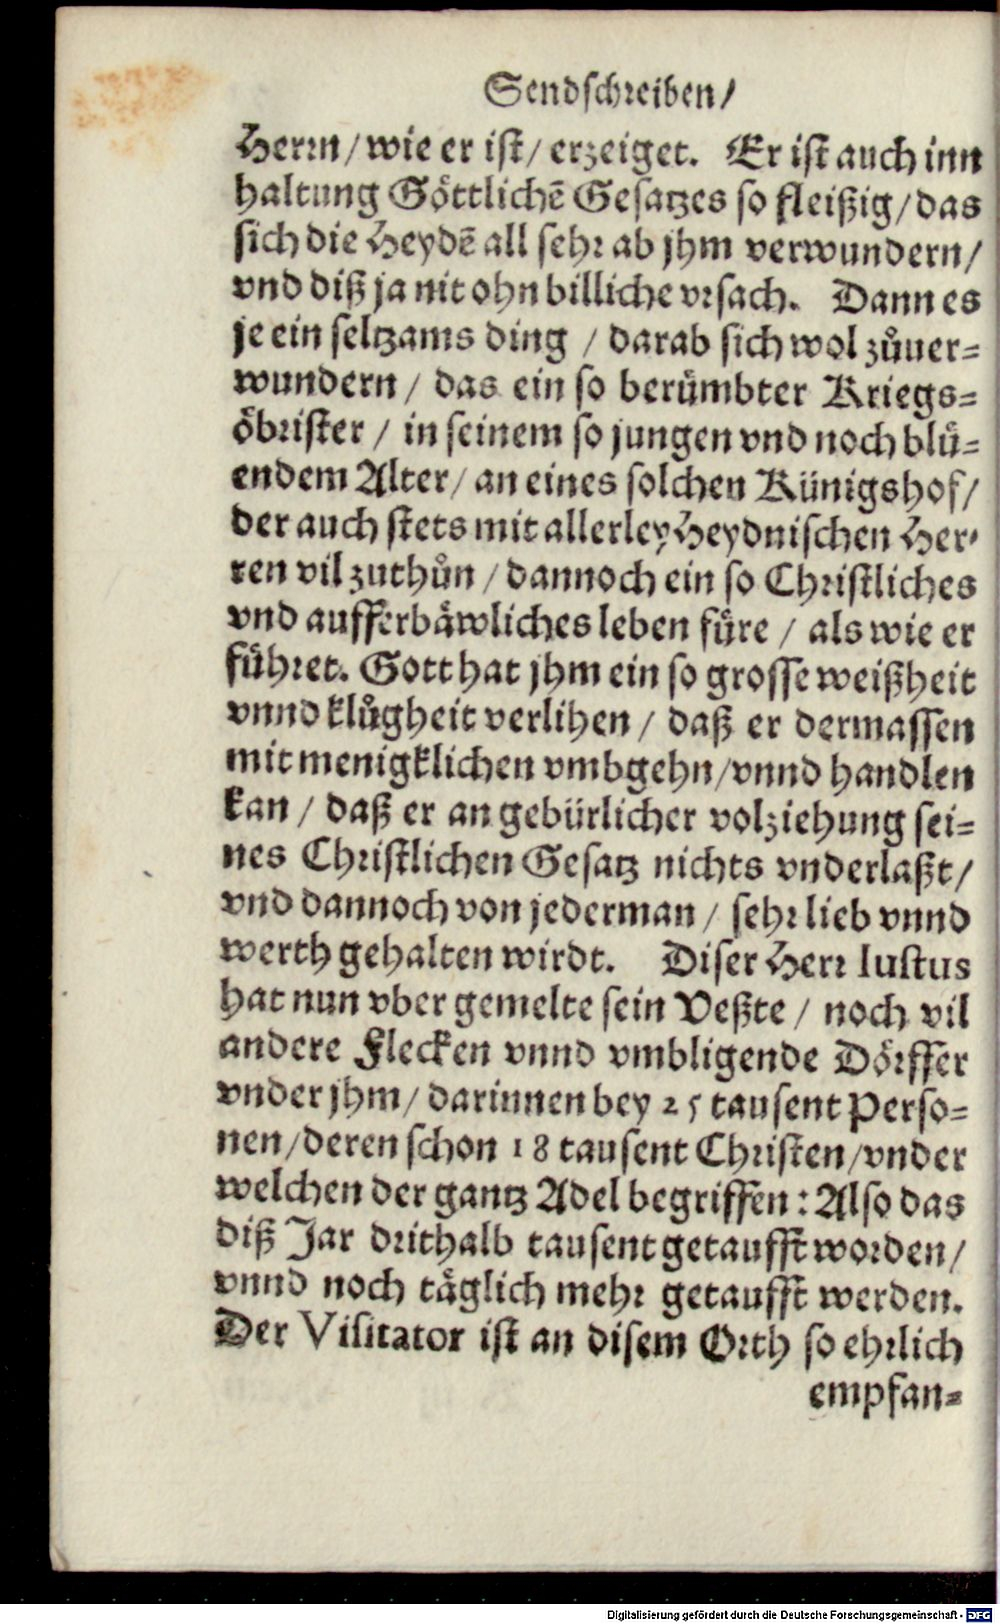 Sendschreiben/
Herrn/ wie er ist/ erzeiget. Er ist auch inn
haltung Göttlichẽ Gesatzes so fleißig/ das
sich die Heydẽ all sehr ab jhm verwundern/
vnd diß ja nit ohn billiche vrsach. Dann es
je ein seltzams ding / darab sich wol zůuer=
wundern / das ein so berümbter Kriegs=
öbrister / in seinem so jungen vnd noch blü=
endem Alter/ an eines solchen Künigshof/
der auch stets mit allerley Heydnischen Her=
ren vil zuthůn / dannoch ein so Christliches
vnd aufferbäwliches leben füre / als wie er
führet. Gott hat jhm ein so grosse weißheit
vnnd klůgheit verlihen / daß er dermassen
mit menigklichen vmbgehn/vnnd handlen
kan / daß er an gebürlicher volziehung sei=
nes Christlichen Gesatz nichts vnderlaßt/
vnd dannoch von jederman / sehr lieb vnnd
werth gehalten wirdt. Diser Herr Iustus
hat nun vber gemelte sein Veßte / noch vil
andere Flecken vnnd vmbligende Dörffer
vnder jhm/ darinnen bey 25 tausent Perso=
nen/deren schon 18 tausent Christen/vnder
welchen der gantz Adel begriffen: Also das
diß Jar drithalb tausent getaufft worden/
vnnd noch täglich mehr getaufft werden.
Der Visitator ist an disem Orth so ehrlich
empfan=
Digitalisierung gefördert durch die Deutsche Forschungsgemeinschaft - DFG